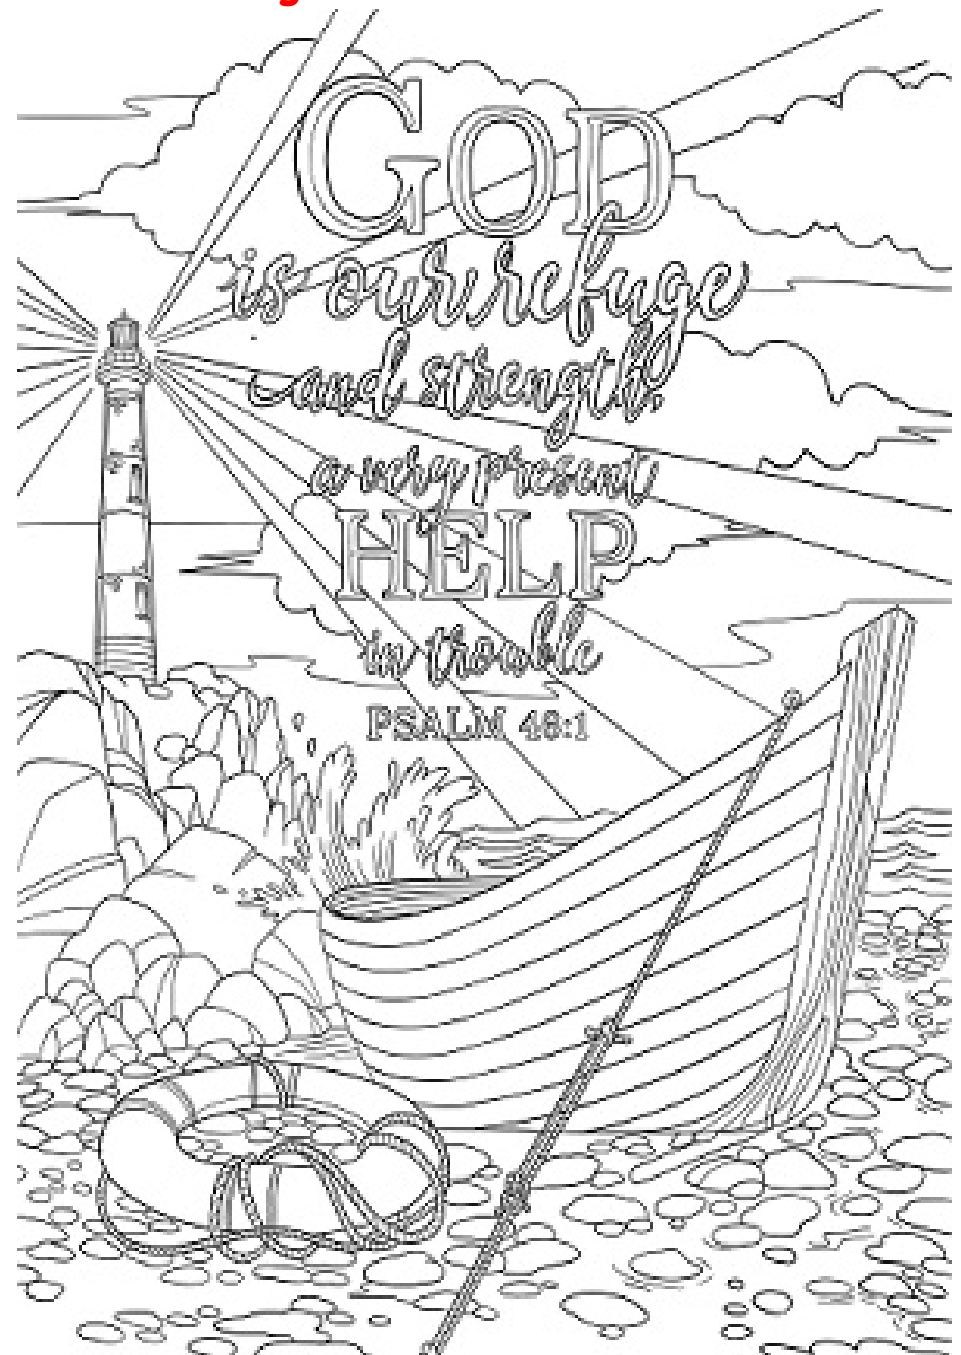 GOD
is our refuge
and strength,
a very present
HELP
in trouble
PSALM 46:1